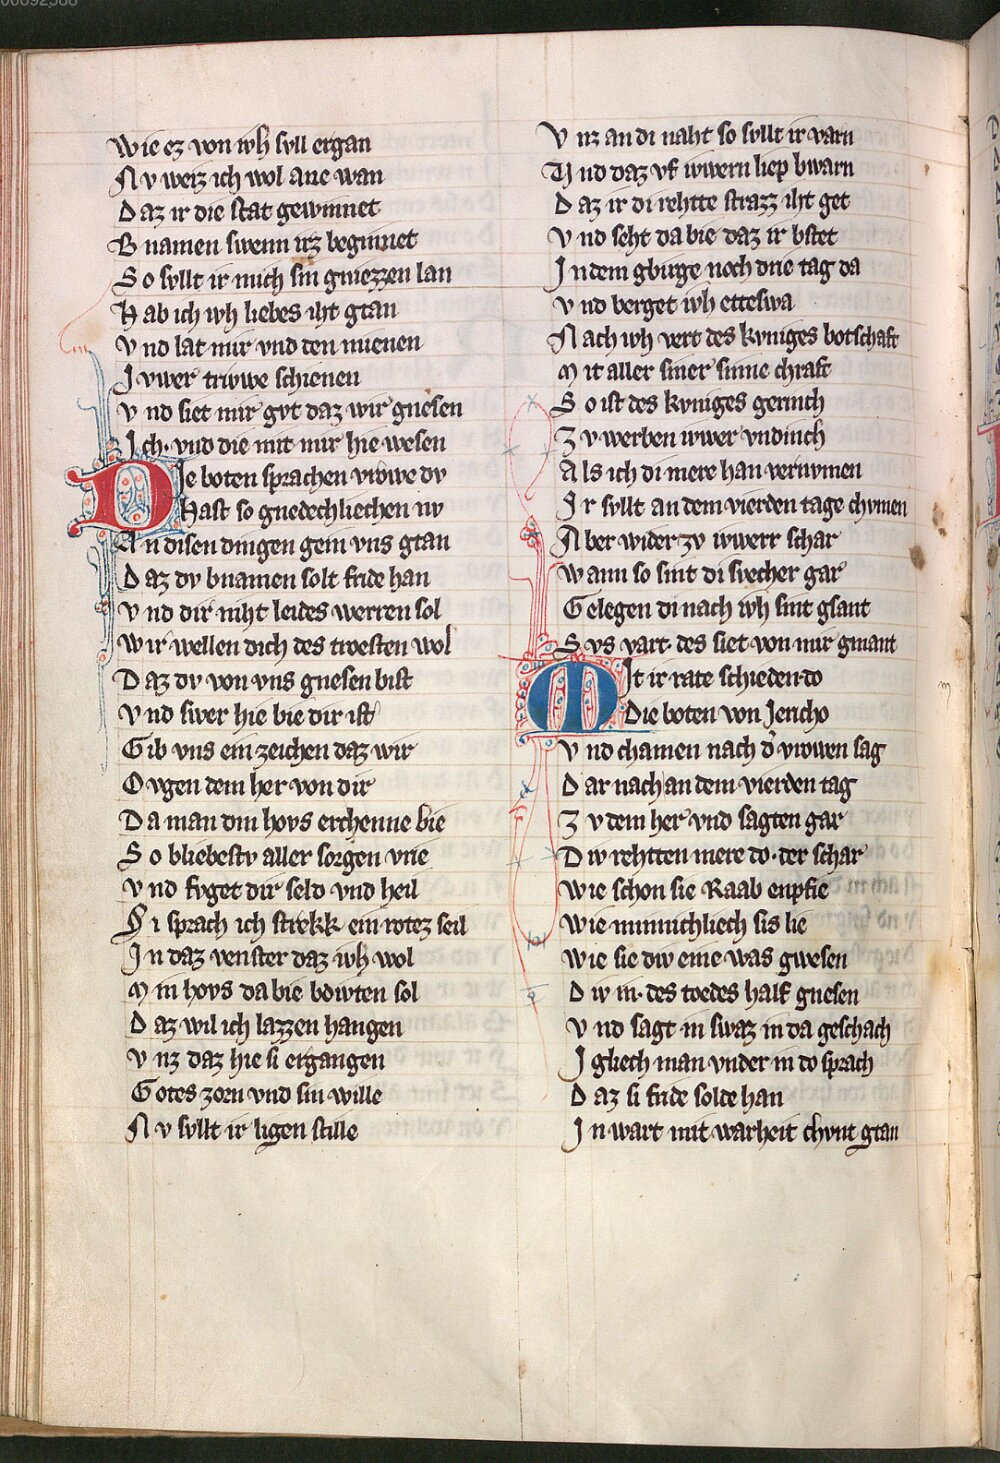 00092588
Wie ez von iwh svll ergan
Nv weiz ich wol ane wan
Daz ir die stat gewinnet
Bnamen swenn irz beginnet
So svllt ir mich sin gniezzen lan
Hab ich iwh liebes iht gtan
Vnd lat mir vnd den meinen
Ivwer triwwe schienen
Vnd siet mir gvt daz wir gnesen
Ich vnd die mit mir hie wesen
Die boten sprachen vrowe dv
Hast so gnedechliechen nv
An disen dingen gein vns gtan
Daz dv bnamen solt fride han
Vnd dir niht leides werren sol
Wir wellen dich des troesten wol
Daz dv von vns gnesen bist
Vnd swer hie bie dir ist
Gib vns ein zeichen daz wir
Ovgen dem her von dir
Da man din hovs erchenne bie
So bliebestv aller sorgen vrie
Vnd fvget dir seld vnd heil
Si sprach ich strekk ein rotez seil
In daz venster daz iwh wol
Min hovs da bie bdivten sol
Daz wil ich lazzen hangen
Vnz daz hie si ergangen
Gotes zorn vnd sin wille
Nv svllt ir ligen stille
Vnz an di naht so svllt ir varn
Vnd daz vf iwwern liep bwarn
Daz ir di rehtte strazz iht get
Vnd seht da bie daz ir bstet
In dem gbirge noch drie tag da
Vnd berget iwh etteswa
Nach iwh vert des kvniges botschaft
Mit aller siner sinne chraft
So ist des kvniges gerinch
Zv werben iwwer vndinch
Als ich di mere han vernvmen
Ir svllt an dem vierden tage chvmen
Aber wider zv iwwerr schar
Wann so sint di svecher gar
Gelegen di nach iwh sint gsant
Svs vart des siet von mir gmant
Mit ir rate schieden do
Die boten von Jericho
Vnd chamen nach d̉ vrowen sag
Dar nach an dem vierden tag
Zv dem her vnd sagten gar
Div rehtten mere do der schar
Wie schon sie Raab enpfie
Wie minnichliech sis lie
Wie sie div eine was gwesen
Div in des todes half gnesen
Vnd sagt in swaz in da geschach
Igliech man vnder in do sprach
Daz si fride solde han
In wart mit warheit chvnt gtan